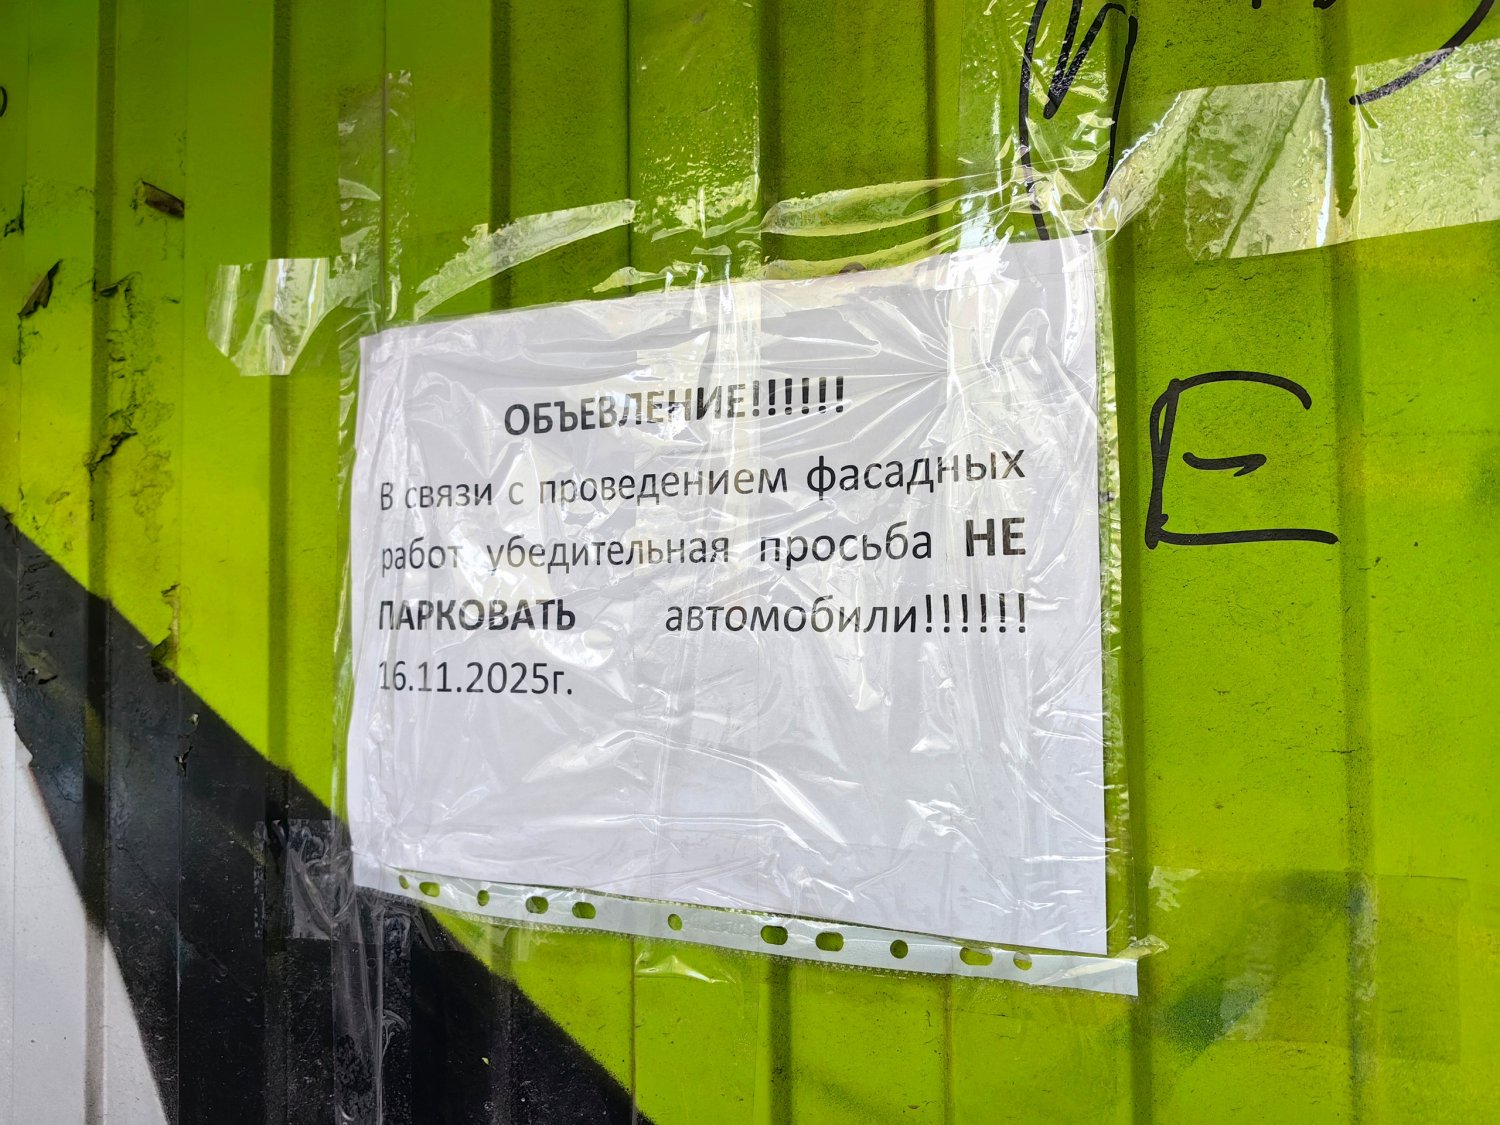 ОБЪЕВЛЕНИЕ!!!!!!
В связи с проведением фасадных
работ убедительная просьба НЕ
ПАРКОВАТЬ автомобили!!!!!!
16.11.2025г.
Е